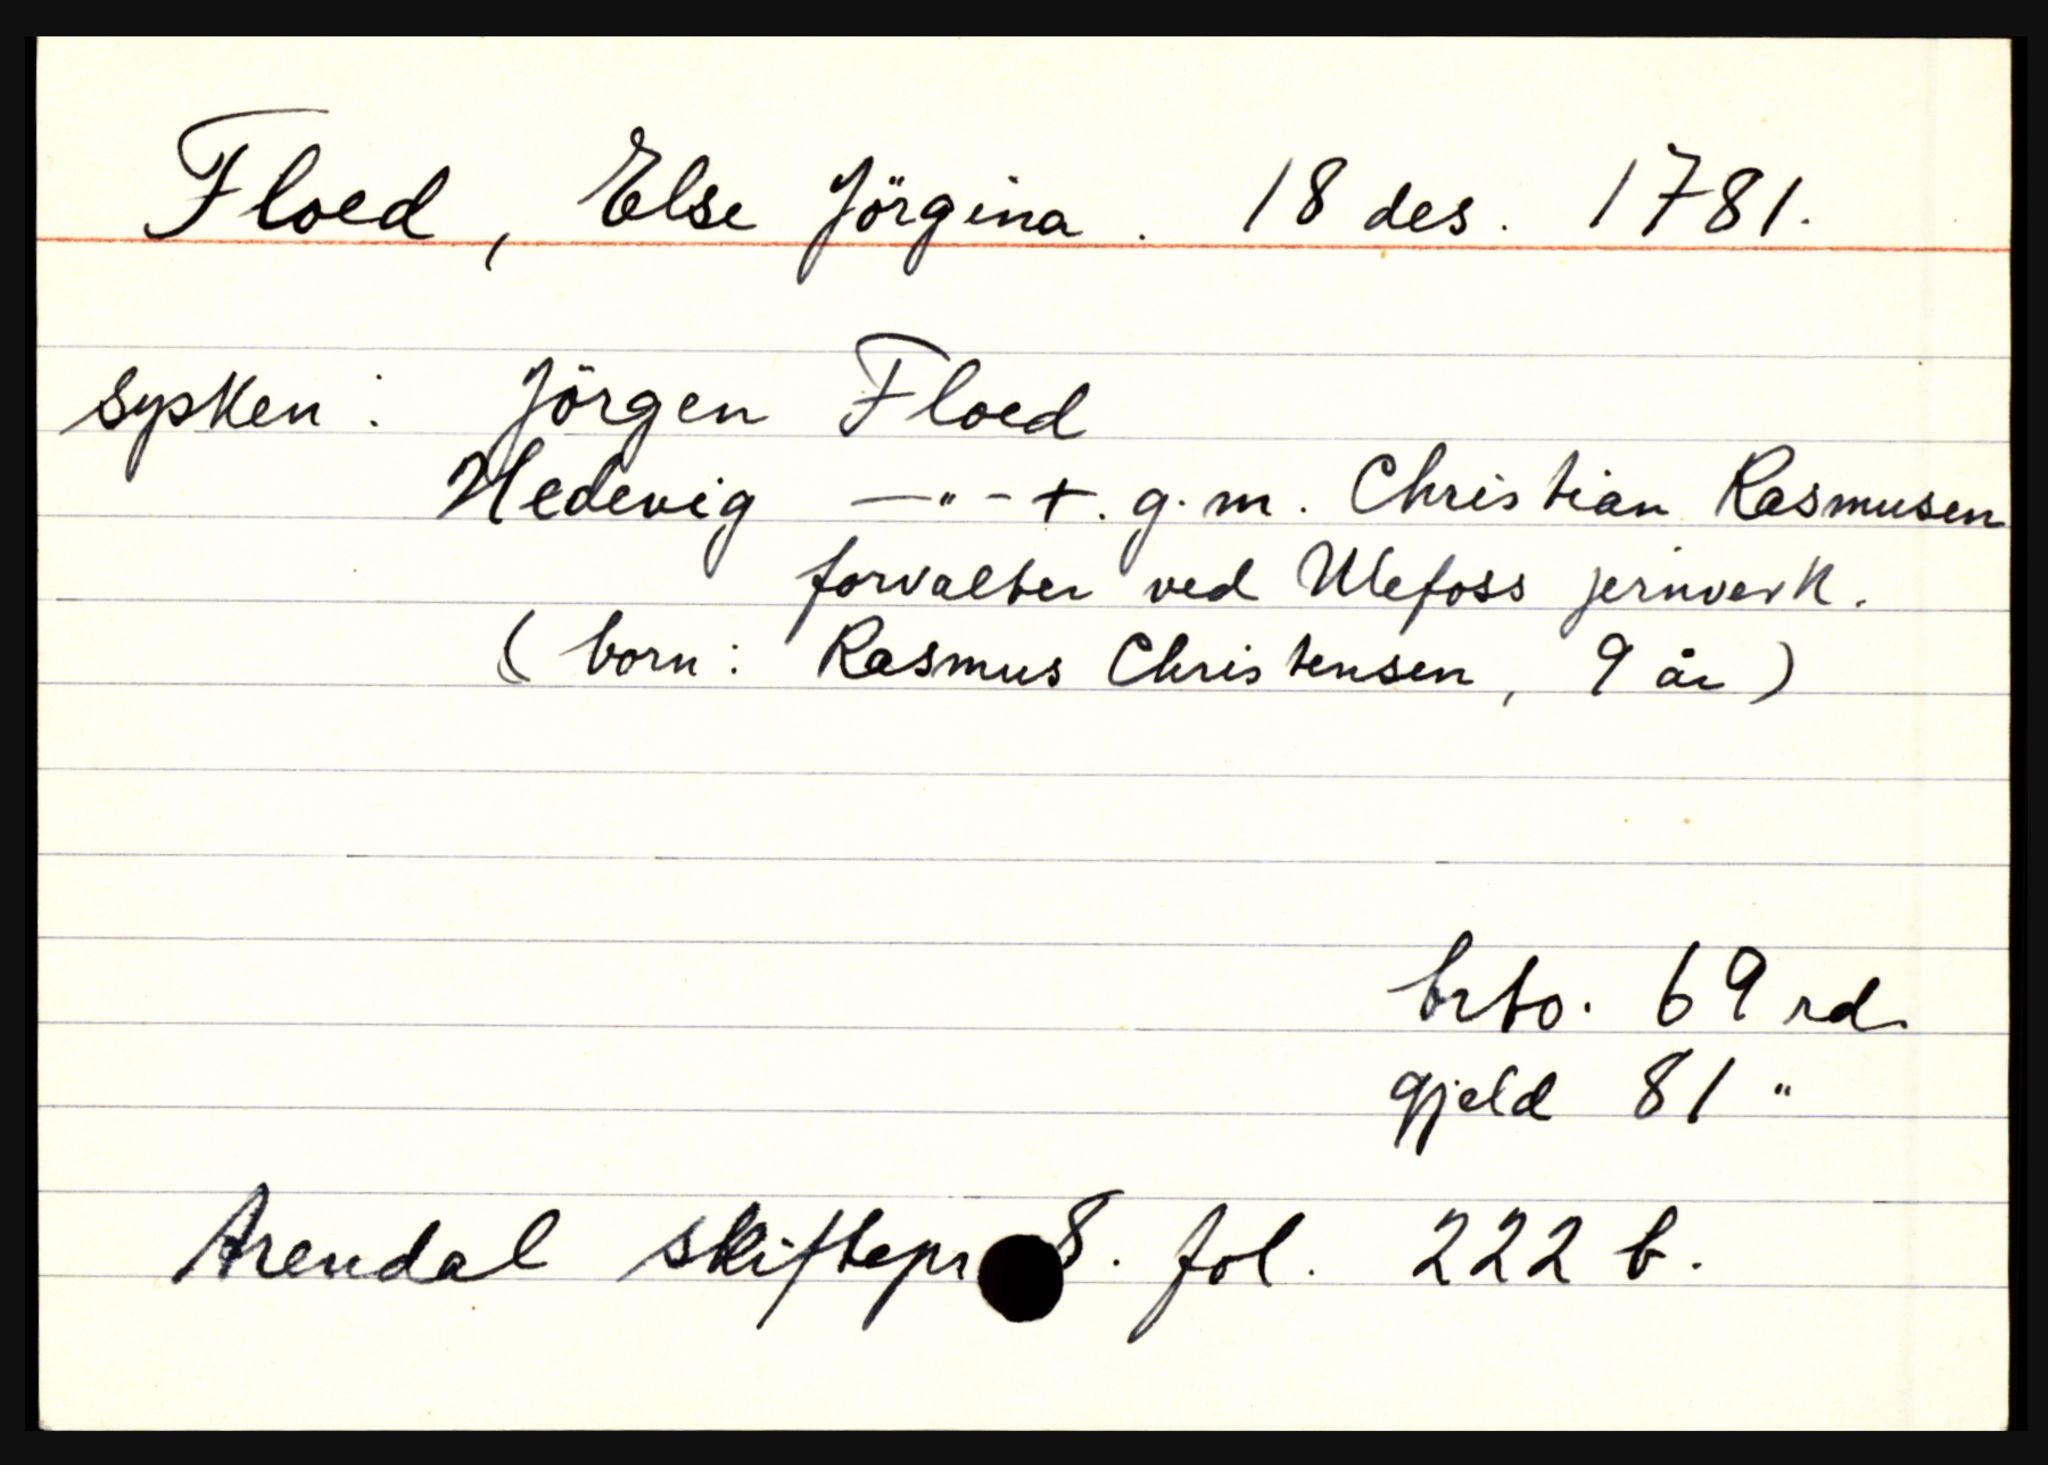 Floed, Else Jörgina. 18 des. 1781.
sysken: Jörgen Floed
Hedevig —"— +. g.m. Christian Rasmusen
forvalter ved Ulefoss jernverk.
(born: Rasmus Christensen, 9 år)
brto. 69 rd.
gjeld 81 "
Arendal skiftepr 8. fol. 222 b.